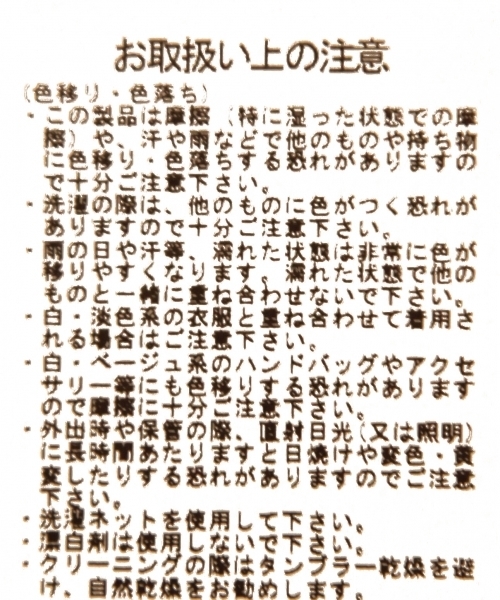 お取扱い上の注意
(色移り・色落ち)
・この製品は摩擦 (特に湿った状態での摩
擦) や、汗や雨などで他のものや持ち物
に色移り・色落ちする恐れがありますの
で十分ご注意下さい。
・洗濯の際は、他のものに色がつく恐れが
ありますので十分ご注意下さい。
・雨の日や汗等、濡れた状態は非常に色が
移りやすくなります。濡れた状態で他の
ものと一緒に重ね合わせないで下さい。
・白・淡色系の衣服と重ね合わせて着用さ
れる場合はご注意下さい。
・白・ベージュ系のハンドバッグやアクセ
サリー等にも色移りする恐れがあります
ので摩擦に十分ご注意下さい。
・外出時や保管の際、直射日光(又は照明)
に長時間あたりますと日焼けや変色・黄
変したりする恐れがありますのでご注意
下さい。
・洗濯ネットを使用して下さい。
・漂白剤は使用しないで下さい。
・クリーニングの際はタンブラー乾燥を避
け、自然乾燥をお勧めします。